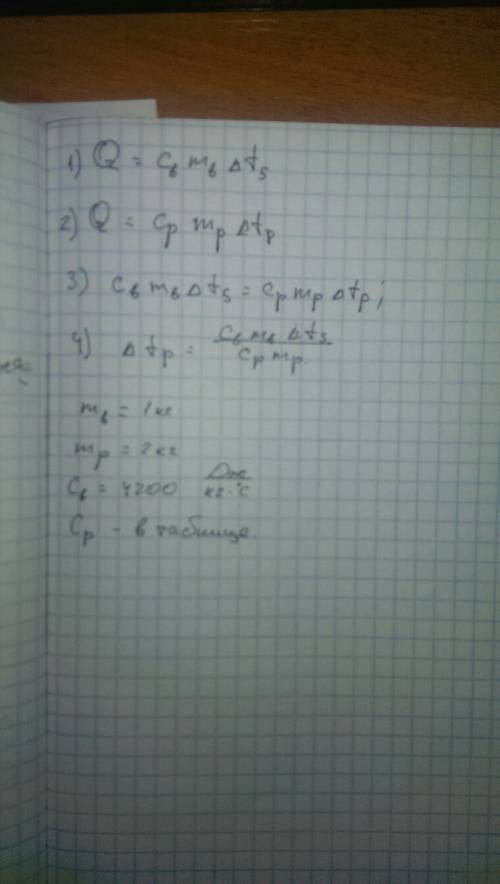 1) Q = cв mв Δt₅
2) Q = cр mр Δtр
3) cв mв Δt₅ = cр mр Δtр;
4) Δtр = cв mв Δt₅ / cр mр.
mв = 1 кг
mр = 2 кг
cв = 4200 Дж / кг·°C
Cр - в таблице.